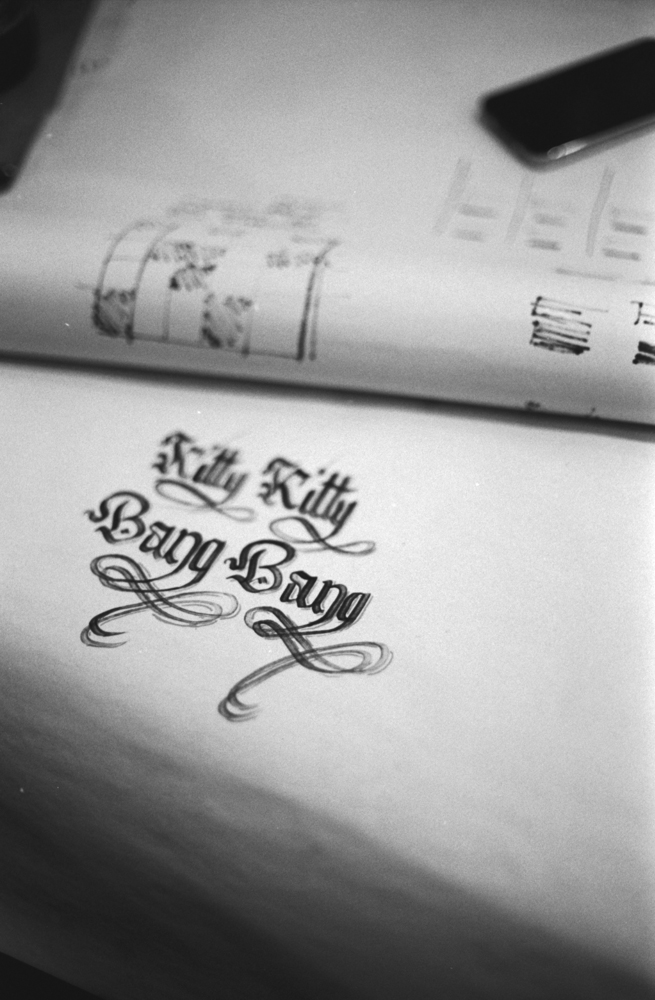 Kitty Kitty
Bang Bang